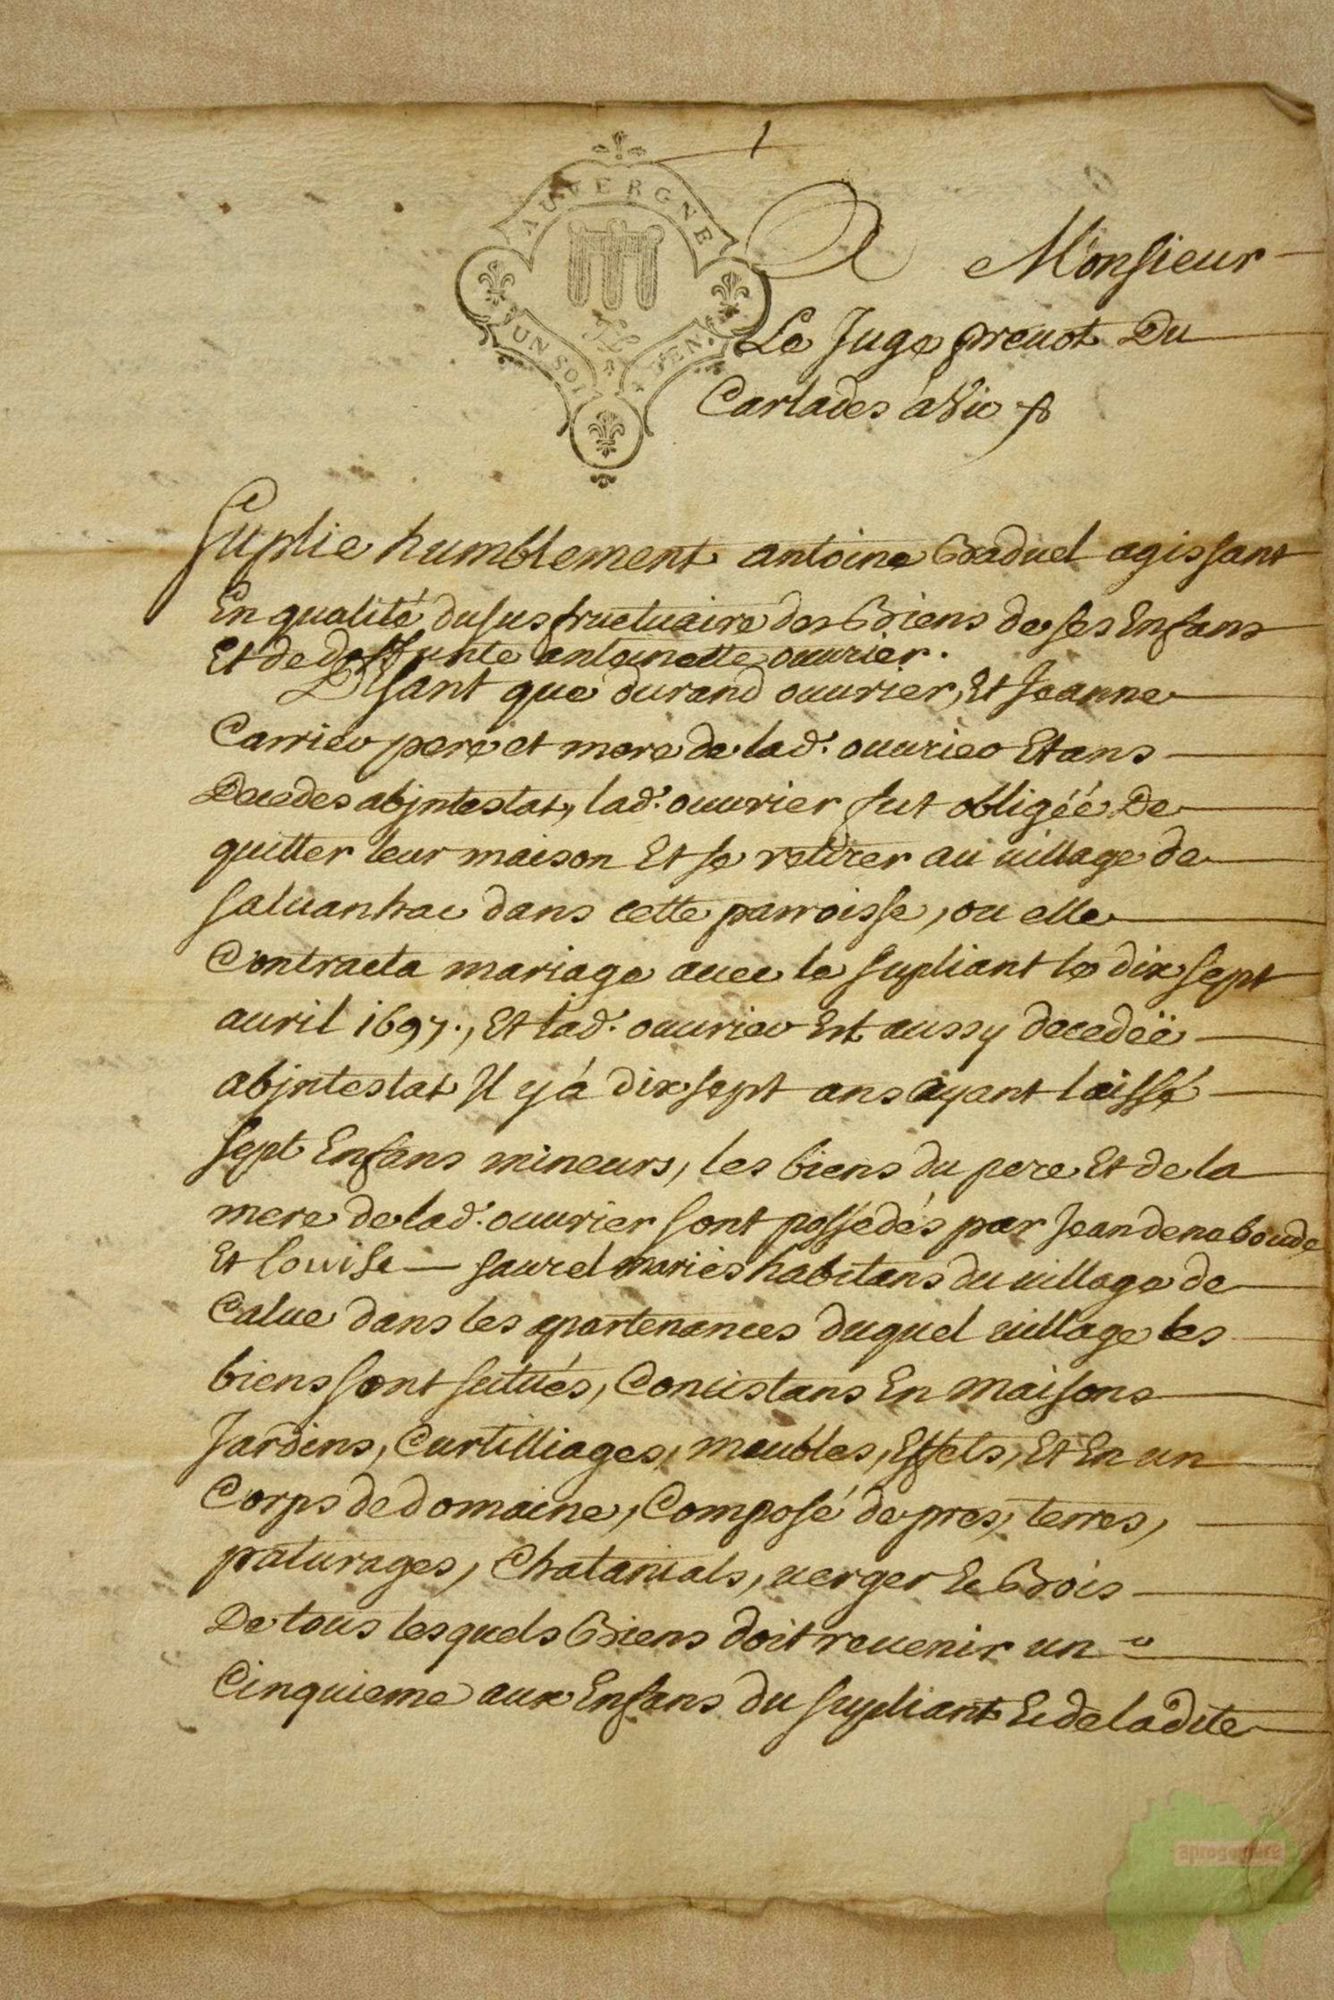 1
AUVERGNE
UN SOL
DEN.
A Monsieur
Le Juge prevot Du
Carlades a Vic
Suplie humblement antoine Braduel agissant
En qualité dusufructuaire des Biens de ses Enfans
Et de deffunte antoinette ouurier.
Disant que durand ouurier, Et Jeanne
Carrier pere et mere de lad. ouurier Etans
Decedes abjntestat, lad. ouurier fut obligéé De
quitter leur maison Et se retirer au uillage de
saluanhac dans cette parroisse, ou elle
Contracta mariage auec le supliant le dix sept
auril 1697., Et lad. ouurier Est aussy decedëë
abjntestat Il y á dix sept ans ayant laissé
sept Enfans mineurs, les biens du pere Et de la
mere de lad. ouurier sont possédés par Jean deneboude
Et Louise — saurel mariés habitans du uillage de
Calue dans les apartenances duquel uillage les
biens sont scitués, Concistans En maisons
Jardins, Curtilliages, meubles, Effets, Et En un
Corps de domaine, Composé de pres, terres,
paturages, Chatanials, uerger & Bois
De tous lesquels Biens doit reuenir un
Cinquieme aux Enfans du supliant & de la dite
aprogemere